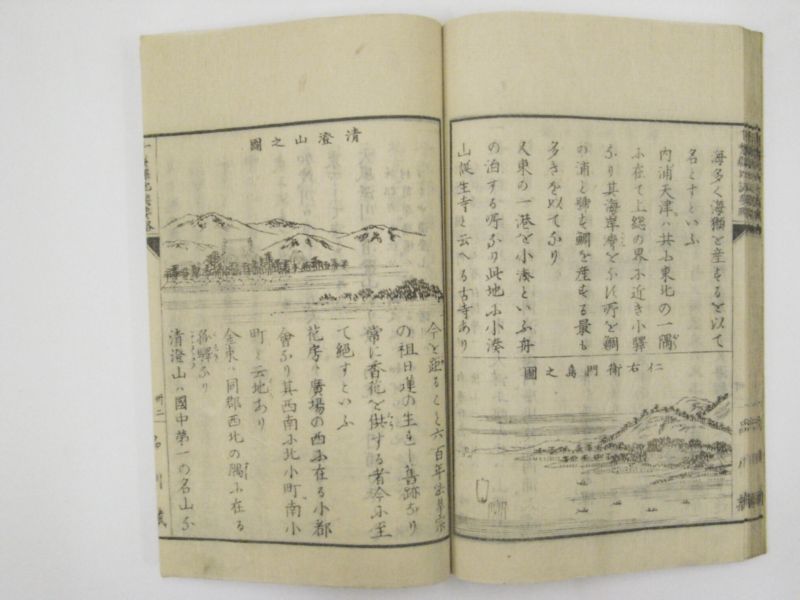 海多く海獺を産するを以て
名とすといふ
内浦天津ハ共ふ東北の一隅
ふ在て上總の界ふ近き小驛
なり其海岸
の浦と號も鯛を産する最も
多きを以てなり
又東の一港を小湊といふ舟
の泊する所なり此地ふ小湊
山誕生寺と云へる古寺あり
仁右衛門島之圖
清澄山之圖
今を距ること六百年
の祖日蓮の生し舊跡なり
常に香花を供する者今ふ至
て絶すといふ
花房ハ廣場の西ふ在る小都
會なり其西南ふ北小町南小
町と云地あり
金束ハ同郡西北の隅ふ在る
驛なり
清澄山ハ國中第一の名山ふ
卅二